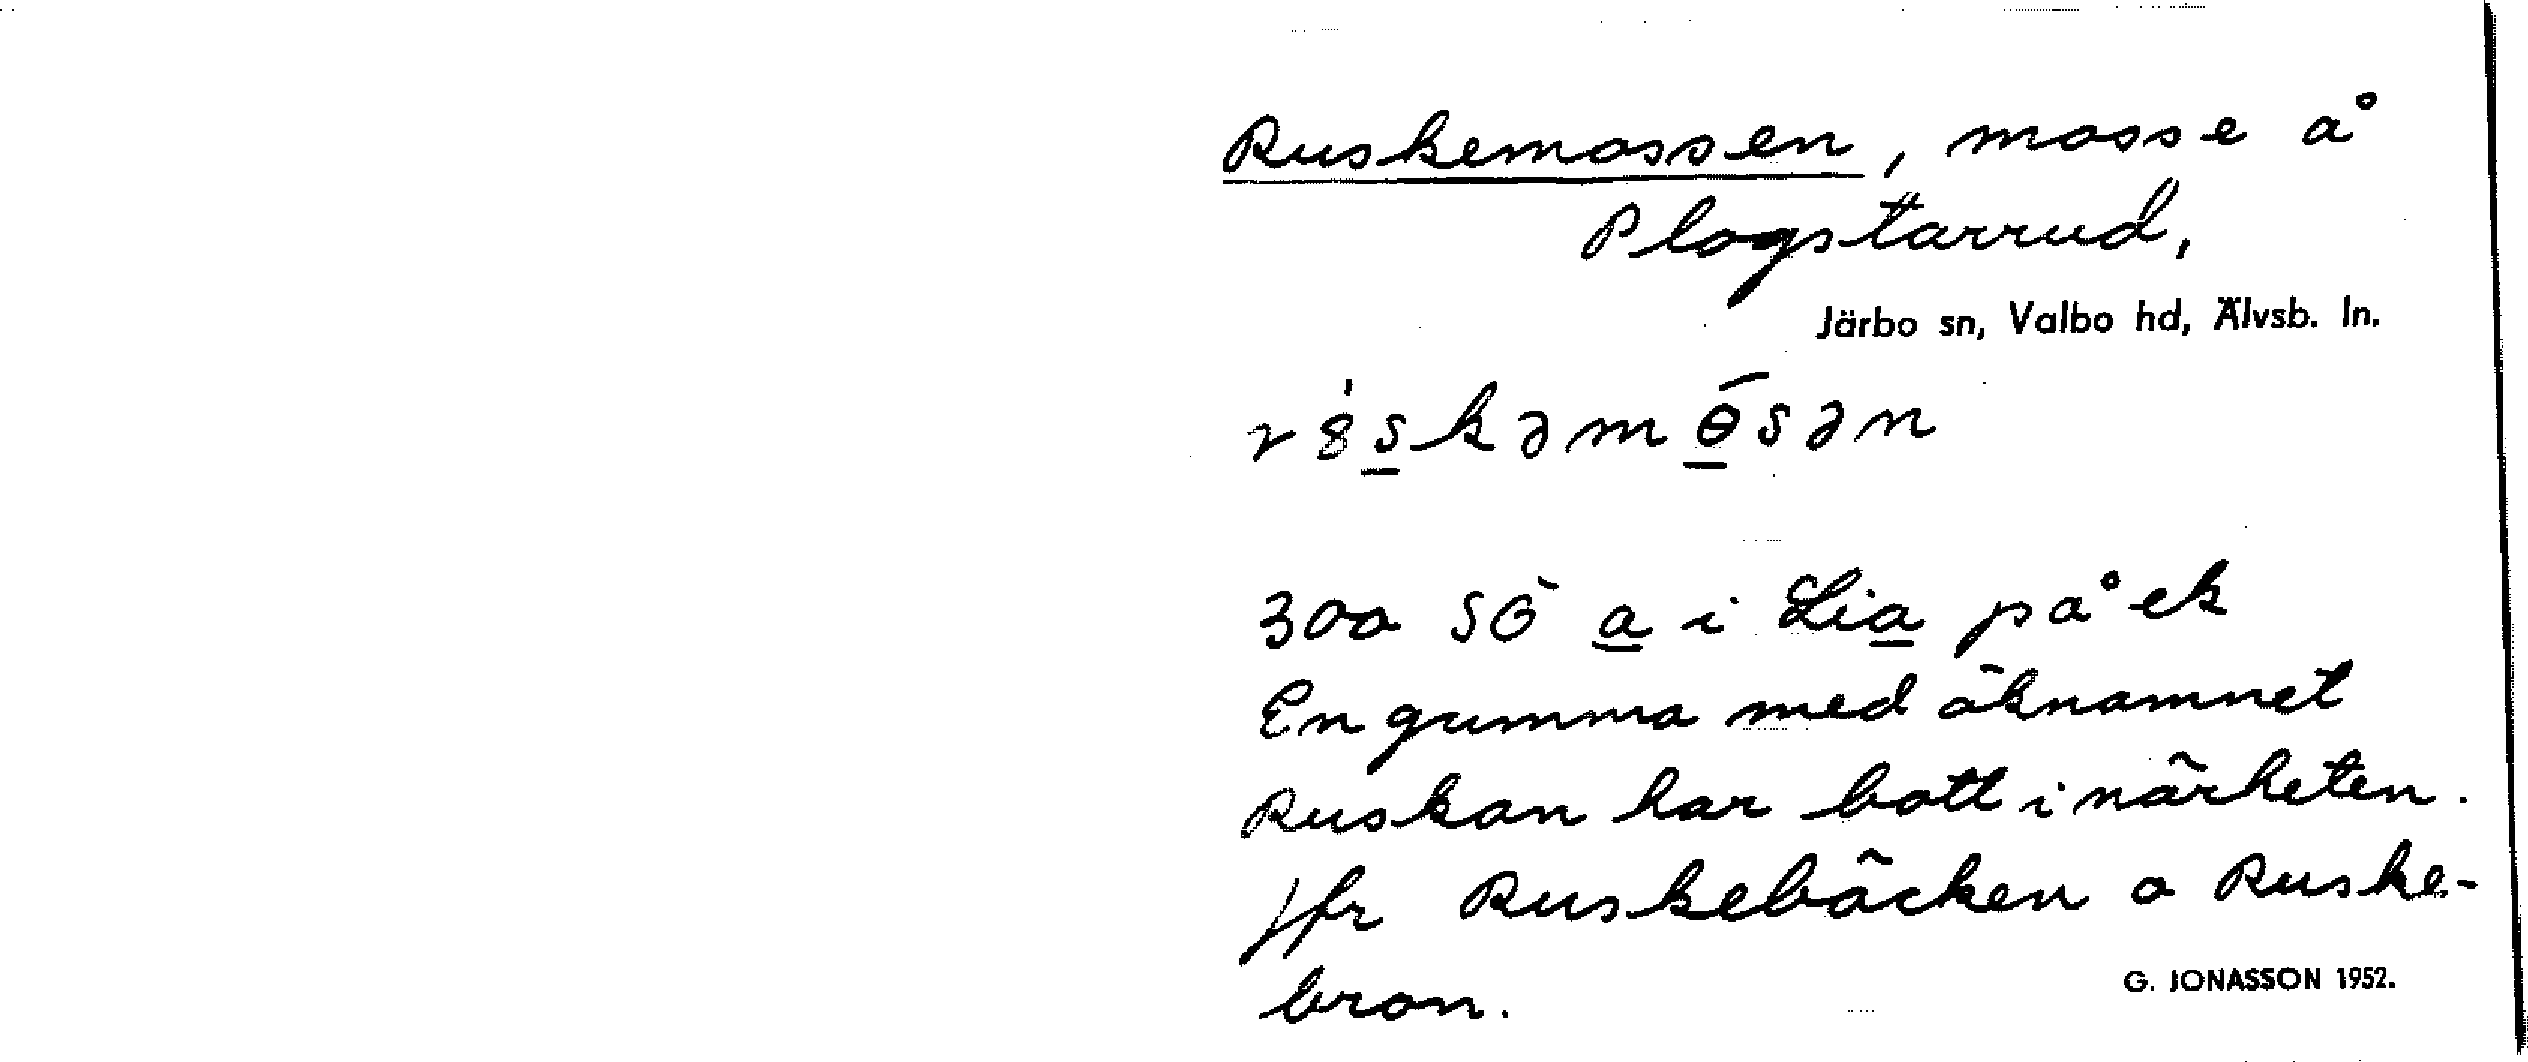 Ruskemossen, mosse å
Plogstarrud,
Järbo sn, Valbo hd, Älvsb. ln.
r8̍s̲kəmɵ̲́sən
300 SÖ a̲ i Lia̲ på ek
En gumma med öknamnet
Ruskan har bott i närheten.
Jfr Ruskebäcken o Ruske-
bron.
G. JONASSON 1952.